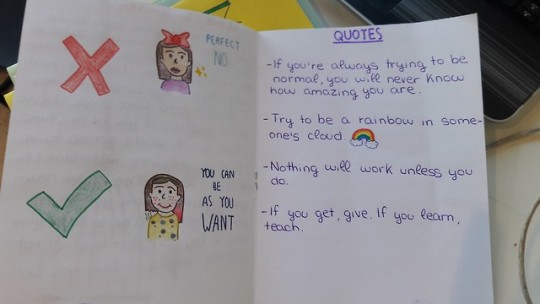 PERFECT
NO
YOU CAN
BE
AS YOU
WANT
QUOTES
-If you're always trying to be
normal, you will never know
how amazing you are.
-Try to be a rainbow in some-
one's cloud.
-Nothing will work unless you
do.
-If you get, give. If you learn,
teach.